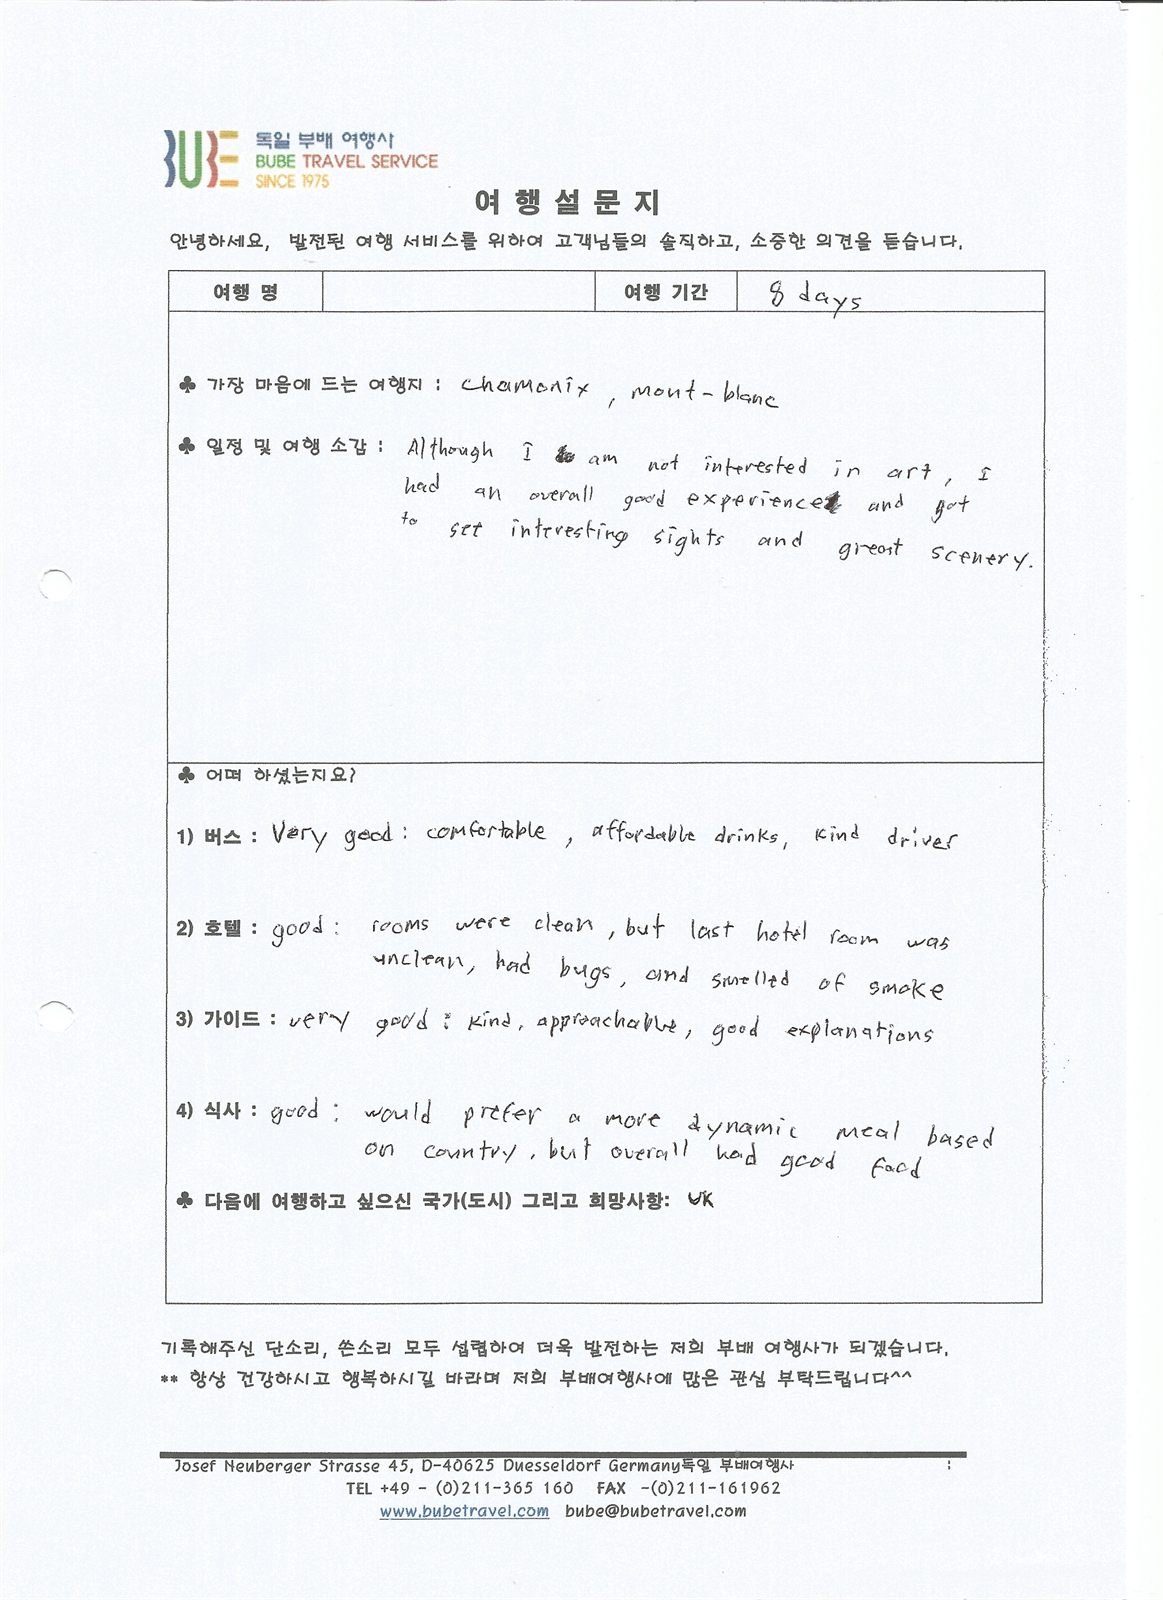 BUBE 독일 부배 여행사
BUBE TRAVEL SERVICE
SINCE 1975
여 행 설 문 지
안녕하세요,  발전된 여행 서비스를 위하여 고객님들의 솔직하고, 소중한 의견을 듣습니다.
여행 명 여행 기간 8 days
♣ 가장 마음에 드는 여행지 : chamonix , mont-blanc
♣ 일정 및 여행 소감 : Although I am not interested in art, I
had an overall good experience and got
to see interesting sights and great scenery.
♣ 어떠 하셨는지요?
1) 버스 : Very good : comfortable , affordable drinks, kind driver
2) 호텔 : good : rooms were clean , but last hotel room was
unclean, had bugs, and smelled of smoke
3) 가이드 : very good : kind, approachable, good explanations
4) 식사 : good : would prefer a more dynamic meal based
on country, but overall had good food
♣ 다음에 여행하고 싶으신 국가(도시) 그리고 희망사항: UK
기록해주신 단소리, 쓴소리 모두 섭렵하여 더욱 발전하는 저희 부배 여행사가 되겠습니다.
** 항상 건강하시고 행복하시길 바라며 저희 부배여행사에 많은 관심 부탁드립니다^^
Josef Neuberger Strasse 45, D-40625 Duesseldorf Germany독일 부배여행사 :
TEL +49 - (0)211-365 160 FAX -(0)211-161962
www.bubetravel.com bube@bubetravel.com